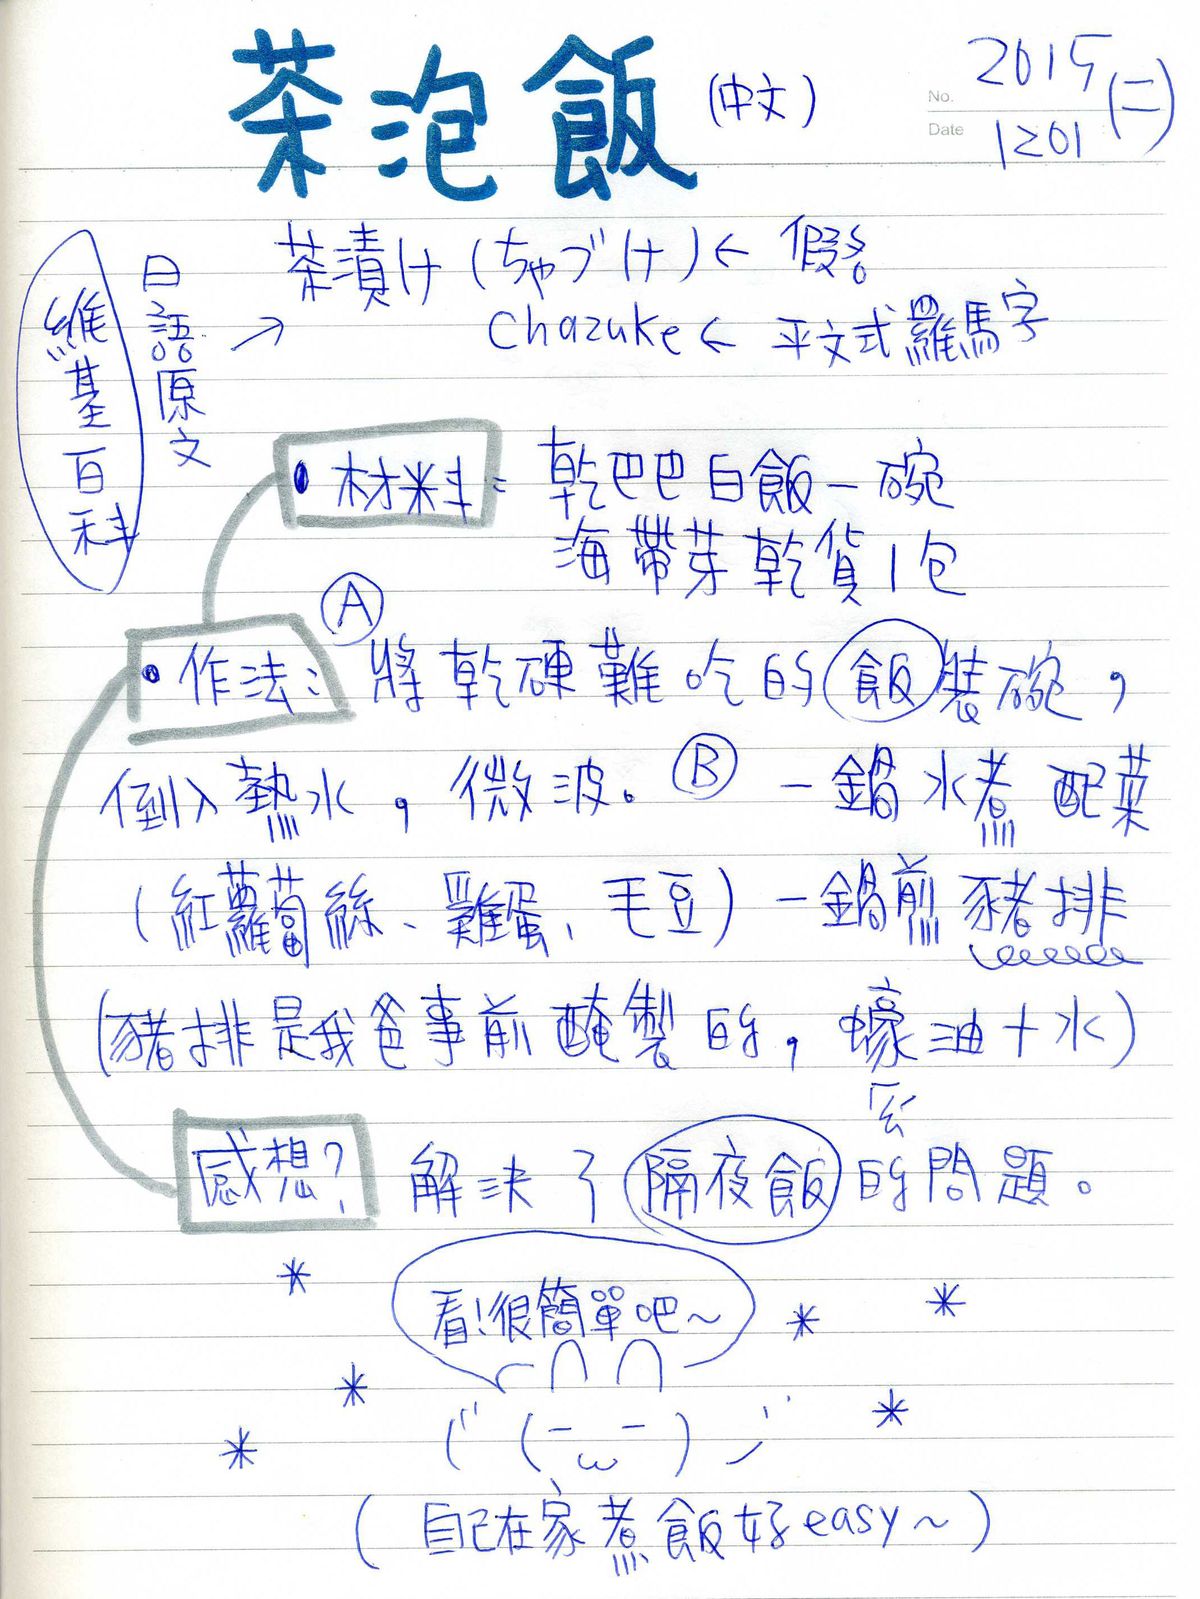 茶泡飯 (中文)
No. 2015
Date 1201 (二)
茶漬け (ちゃづけ) ← 假名
chazuke ← 平文式羅馬字
維基百科
日語原文 →
• 材料: 乾巴巴白飯一碗
海帶芽乾貨1包
• 作法: Ⓐ 將乾硬難吃的飯裝碗,
倒入熱水,微波。Ⓑ 一鍋水煮配菜
(紅蘿蔔絲、雞蛋、毛豆) 一鍋煎豬排
(豬排是我爸事前醃製的,蠔油+水)
感想? 解決了隔夜飯的問題。
看!很簡單吧~
(自己在家煮飯好easy~)